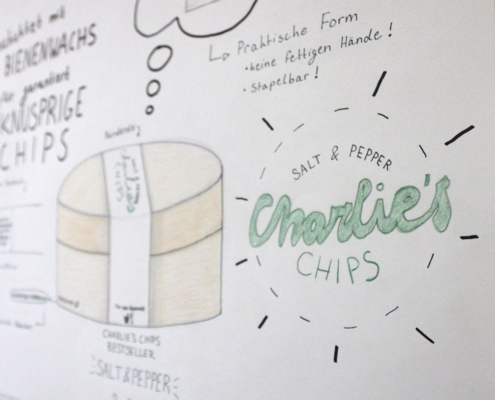 schichtet mit
BIENENWACHS
für garantiert
KNUSPRIGE
CHIPS
Praktische Form
• keine fettigen Hände!
• Stapelbar!
SALT & PEPPER
Charlie's
CHIPS
CHARLIE'S CHIPS
BESTSELLER
SALT & PEPPER